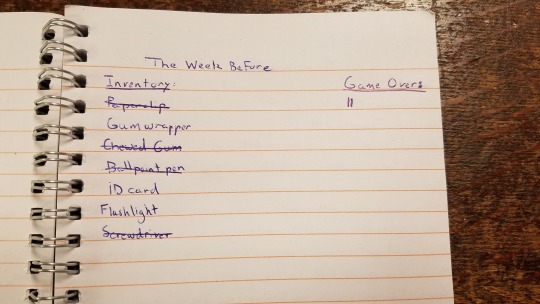 The Week Before
Inventory:
Game Overs
Paperclip
II
Gum wrapper
Chewed Gum
Ballpoint pen
iD card
Flashlight
Screwdriver